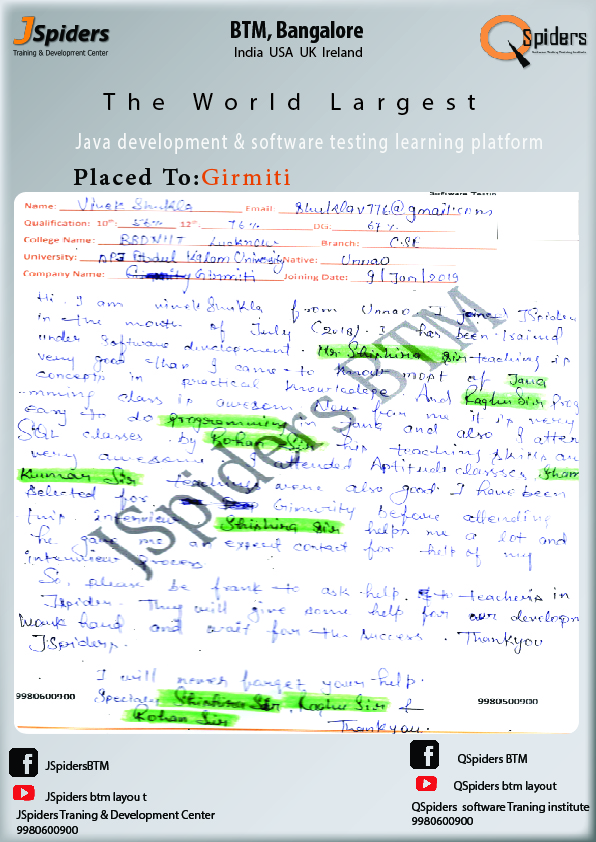 JSpiders
Training & Development Center
BTM, Bangalore
India USA UK Ireland
QSpiders
Software Testing Training Institute
The World Largest
Java development & software testing learning platform
Placed To:Girmiti
Software Testin
Name: Vivek Shukla Email: Shuklav776@gmail.com
Qualification: 10th: 56% 12th: 76% DG: 67%
College Name: BBDNIIT Lucknow Branch: C.SE
University: APJ Abdul Kalam University Native: Unnao
Company Name: Girmiti Joining Date: 9/Jan/2019
Hi. I am vivek Shukla from Unnao. I joined JSpiders
in the month of July (2018). I has been trained
under Software development. Mr. Shishira Sir teaching is
very good than I came to know most of Java
concepts in practical knowledge. And Raghu Sir Prog
-mming class is awesome. Now from me it is very
easy to do programming in Java and also I atten
SQL classes by Rohan Sir his teaching skills an
very awesome. I attended Aptitude classes, Sham
Kumar Sir teaching were also good. I have been
selected for Girmity before attending
this interview Shishira Sir helps me a lot and
he gave me an expect contact for help of my
interview process
So, please be frank to ask help. to teachers in
Jspider. They will give some help for our developm
work hard and wait for the success. Thankyou
JSpiders.
I will never forget your help.
Specialy Shishira Sir, Raghu Sir &
Rohan Sir Thankyou.
JSpiders BTM
9980600900 9980500900
JSpidersBTM
JSpiders btm layou t
JSpiders Traning & Development Center
9980600900
QSpiders BTM
QSpiders btm layout
QSpiders software Traning institute
9980600900